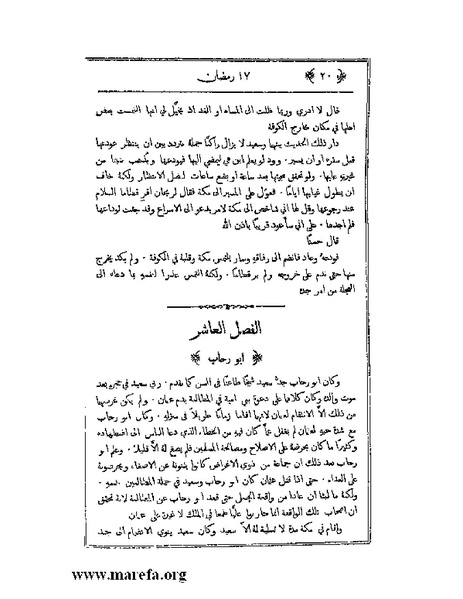 ﴿ ٢٠ ﴾ ١٧ رمضان
قال لا ادري وربما ظلت الى المساء او الغد اذ يخيَّل لي انها التمست بعض
اهلها في مكان بخارج الكوفة
دار ذلك الحديث بينها وسعيد لا يزال راكبًا جمله متردد بين ان ينتظر عودتها
قبل سفره او ان يسير . وود لو يعلم اين هي ليمضي اليها فيودعها
غيرته عليها . ولو تحقق مجيئها بعد ساعة او بضع ساعات لفضل الانتظار ولكنه خاف
ان يطول غيابها ايامًا . فعوّل على المسير الى مكة فقال لريحان اقرِ قطاما السلام
عند رجوعها وقل لها اني شاخص الى مكة لامر يدعو الى الاسراع وقد جئت لوداعها
فلم اجدها . على اني سأعود قريبًا باذن الله
قال حسنًا
فودعه وعاد فانضم الى رفاقه وسار يلتمس مكة وقلبه في الكوفة . ولم يكد يخرج
منها حتى ندم على خروجه ولم ير قطامًا . ولكنه التمس عذرا لنفسه بما دعاه الى
العجلة من امر جده
الفصل العاشر
﴿ ابو رحاب ﴾
وكان ابو رحاب جدّ سعيد شيخًا طاعنًا في السن كما تقدم . ربي سعيد في حجره بعد
موت والده وكان كلاهما على دعوة بني امية في المطالبة بدم عثمان . ولم يكن غرضهما
من ذلك الاَّ الانتقام لعثمان لانهما اقاما زمانًا طويلاً في منزله . وكان ابو رحاب
مع شدة حبه لعثمان لم يغفل عما كان فيه من الخطاء الذي دعا الناس الى اضطهاده
وكثيرًا ما كان يحرضه على الاصلاح ومصالحة المسلمين فلم يصغ له الاَّ قليلاً . وعلم ابو
رحاب بعد ذلك ان جماعة من ذوي الاغراض كانوا يثنونه عن الاصغاء ويحرضونه
على العداء . حتى اذا قتل عثمان كان ابو رحاب وسعيد في جملة المطالبين بدمه .
ولكنه ما لبثا ان عادا من واقعة الجمل حتى قعد ابو رحاب عن المطالبة لانه تحقق
ان اصحاب تلك الواقعة انما حاربوا عليًّا طمعا في الملك لا غيرة على عثمان
واقام في مكة مدة لا تسلية له الاَّ سعيد وكان سعيد ينوي الانضمام الى جند
www.marefa.org